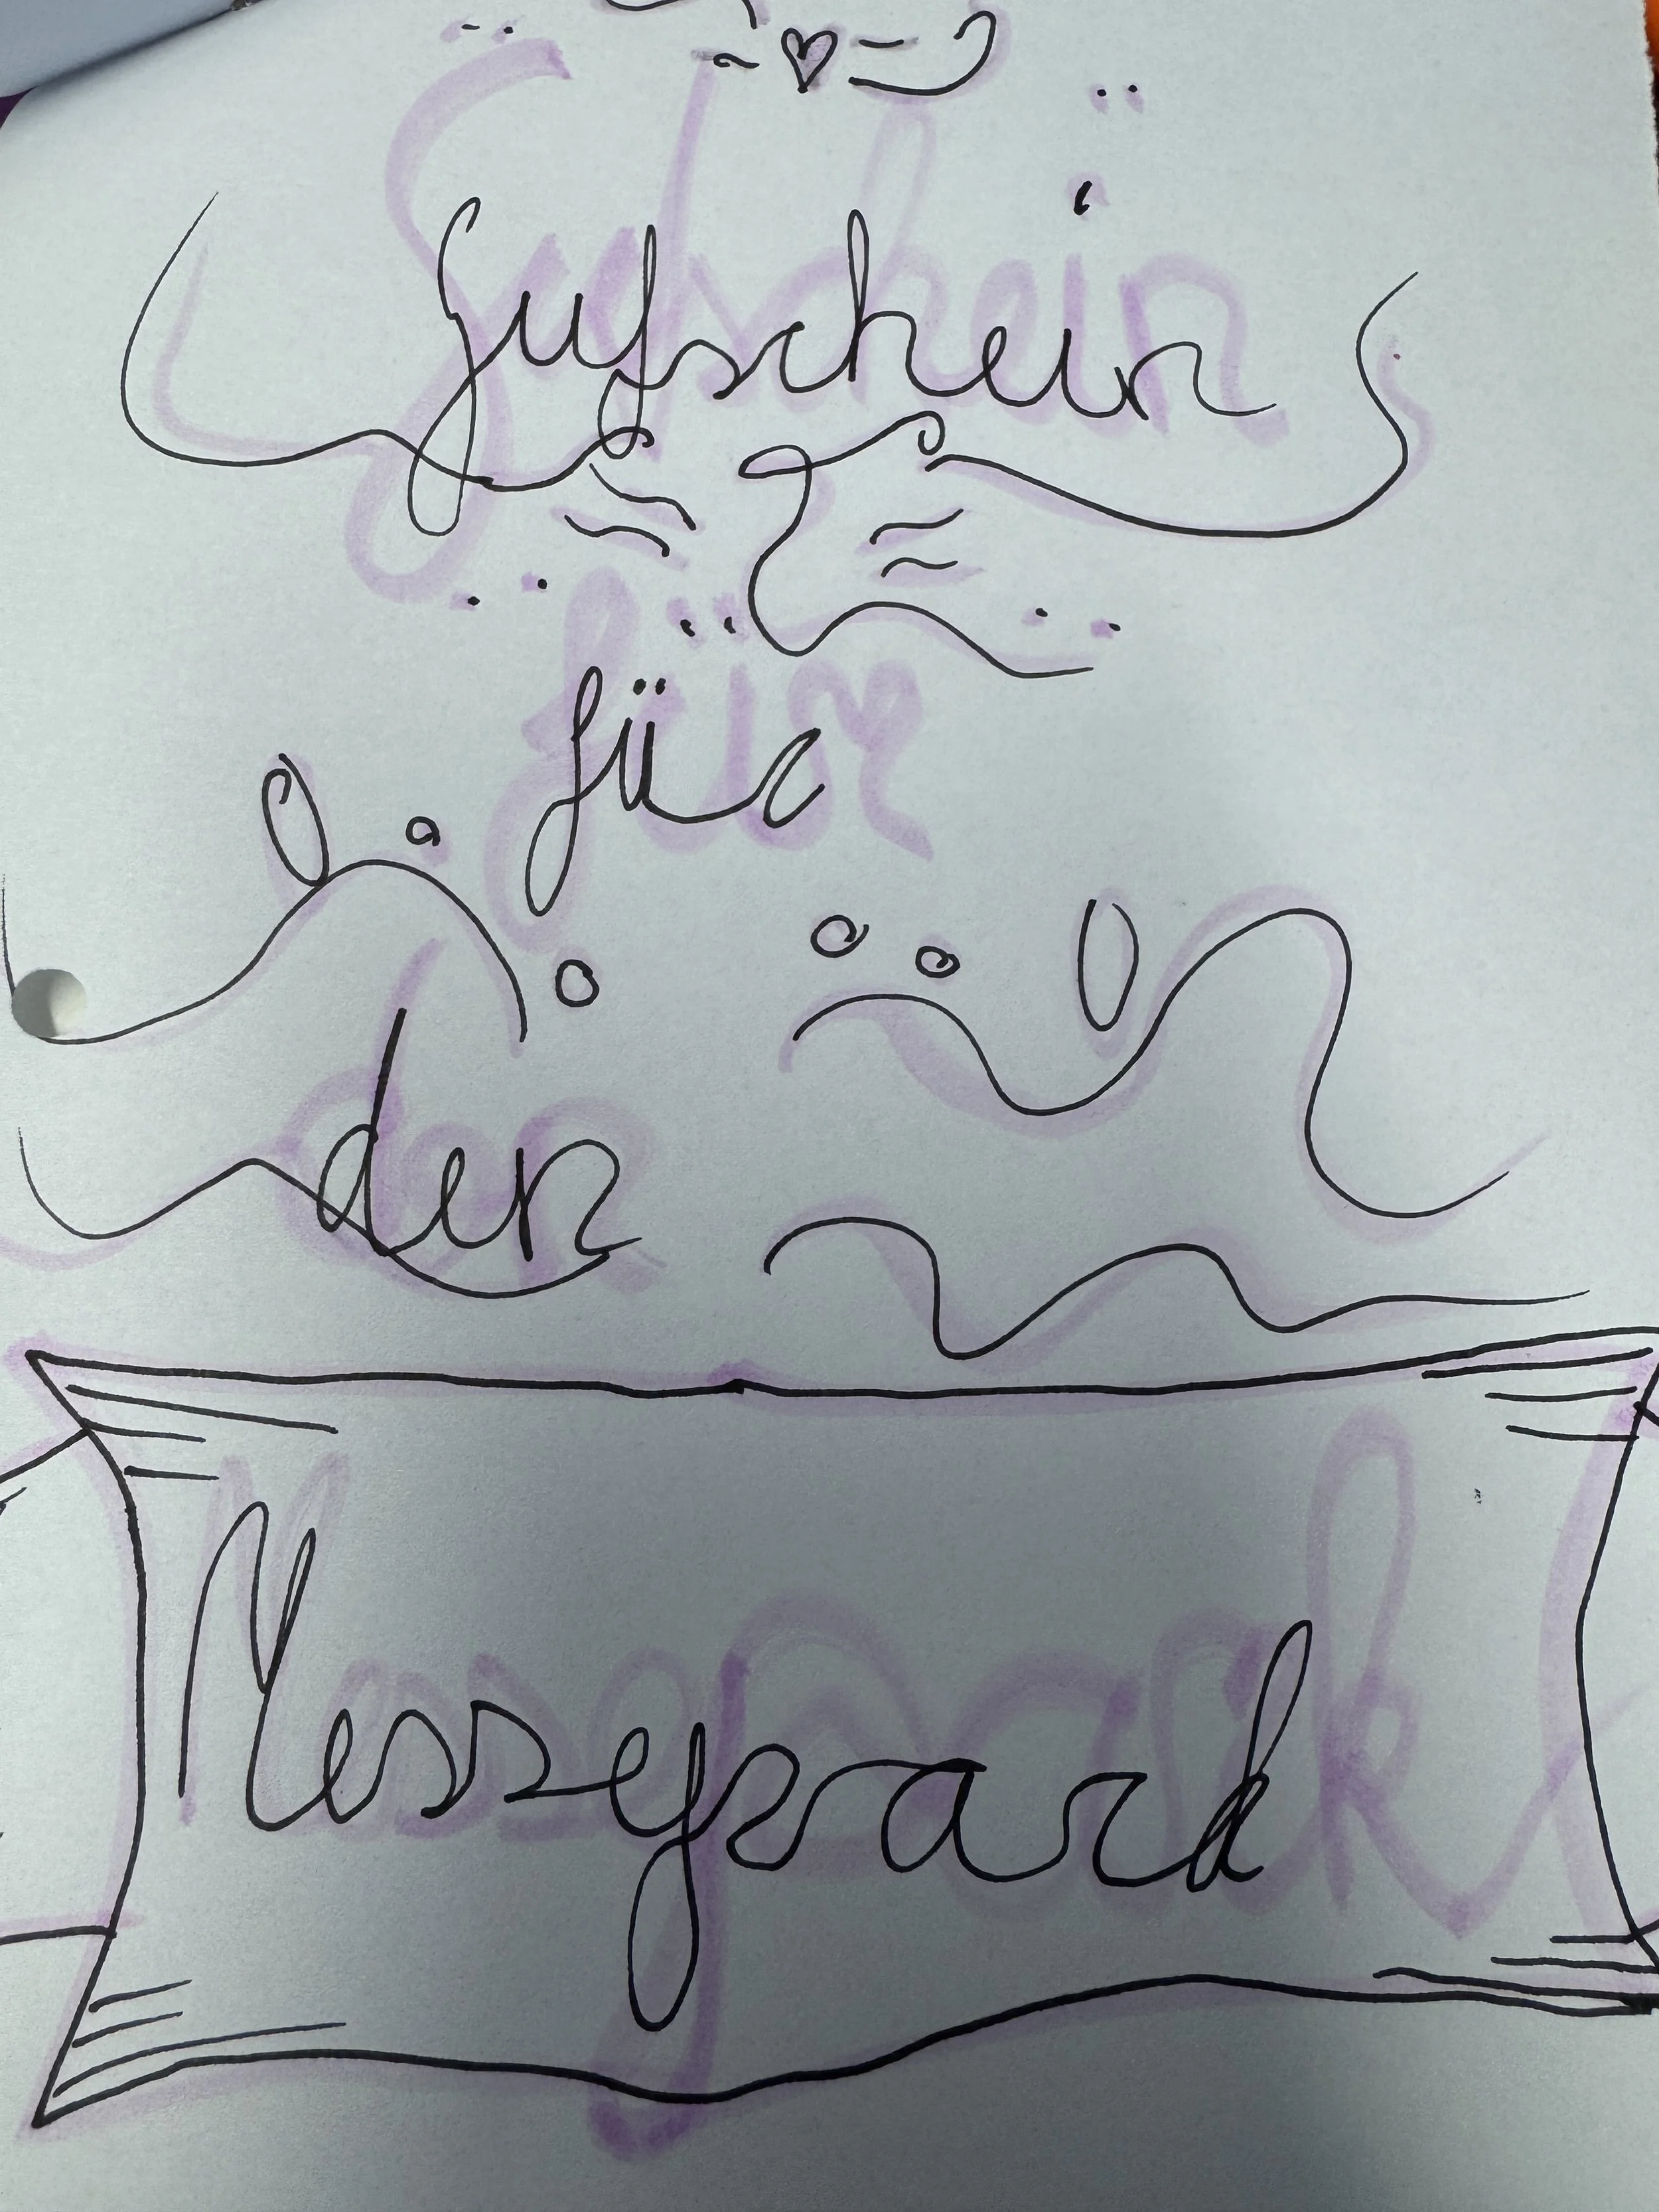 Gutschein
für
den
Messepark